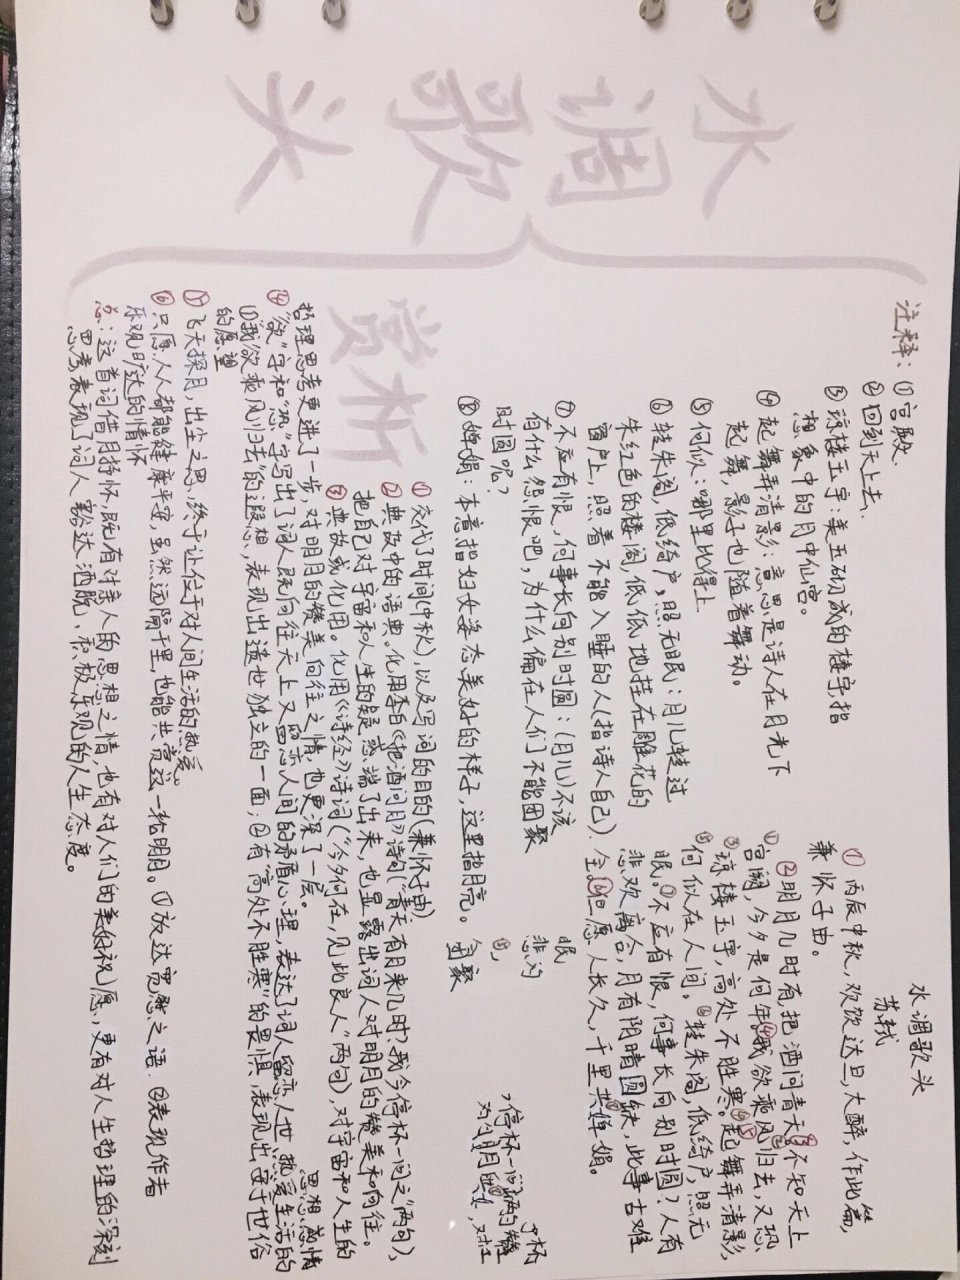 水调歌头
水调歌头
苏轼
①丙辰中秋,欢饮达旦,大醉,作此篇,
兼怀子由。
②明月几时有把酒问青天③不知天上
①宫阙,今夕是何年④我欲乘风②归去,又恐
③琼楼玉宇,高处不胜寒。④⑤起舞弄清影,
⑤何似在人间。⑥转朱阁,低绮户,照无
眠。⑦不应有恨,何事长向别时圆?人有
悲欢离合,月有阴晴圆缺,此事古难
全。⑥但愿人长久,千里共⑧婵娟。
注释:①宫殿.
②回到天上去.
③琼楼玉宇:美玉砌成的楼宇,指
想象中的月中仙宫。
④起舞弄清影:意思是诗人在月光下
起舞,影子也随着舞动。
⑤何似:哪里比得上.
⑥转朱阁,低绮户,照无眠:月儿转过
朱红色的楼阁,低低地挂在雕花的
窗户上,照着不能入睡的人(指诗人自己).
⑦不应有恨,何事长向别时圆:(月儿)不该
有什么怨恨吧,为什么偏在人们不能团聚
时圆呢?
⑧婵娟:本意指妇女姿态美好的样子,这里指月亮。
赏析
①交代了时间(中秋),以及写词的目的(兼怀子由)
②典故中的语典。化用李白《把酒问月》诗句(“青天有月来几时?我今停杯一问之”两句),
把自己对宇宙和人生的疑惑端了出来,也显露出词人对明月的赞美和向往。
③典故或化用。化用《诗经》诗词(“今夕何在,见此良人”两句),对宇宙和人生的
哲理思考更进了一步,对明月的赞美向往之情也更深了一层。
④“欲”字和“恐”字写出了词人既向往天上又留恋人间的矛盾心理,表达了词人留恋人世热爱生活的思想感情
①“我欲乘风归去”的遐想,表现出遗世独立的一面;②有高处不胜寒”的畏惧,表现出安于世俗
的愿望
⑤飞天探月,出尘之思,终于让位于对人间生活的热爱。
⑥只愿人人都能健康平安,虽然远隔千里,也能共赏这一轮明月。①放达宽慰之语.②表现作者
乐观旷达的情怀
总:这首词借月抒怀,既有对亲人的思想之情,也有对人们的美好祝愿,更有对人生哲理的深刻
思考,表现了词人豁达洒脱、积极乐观的人生态度。